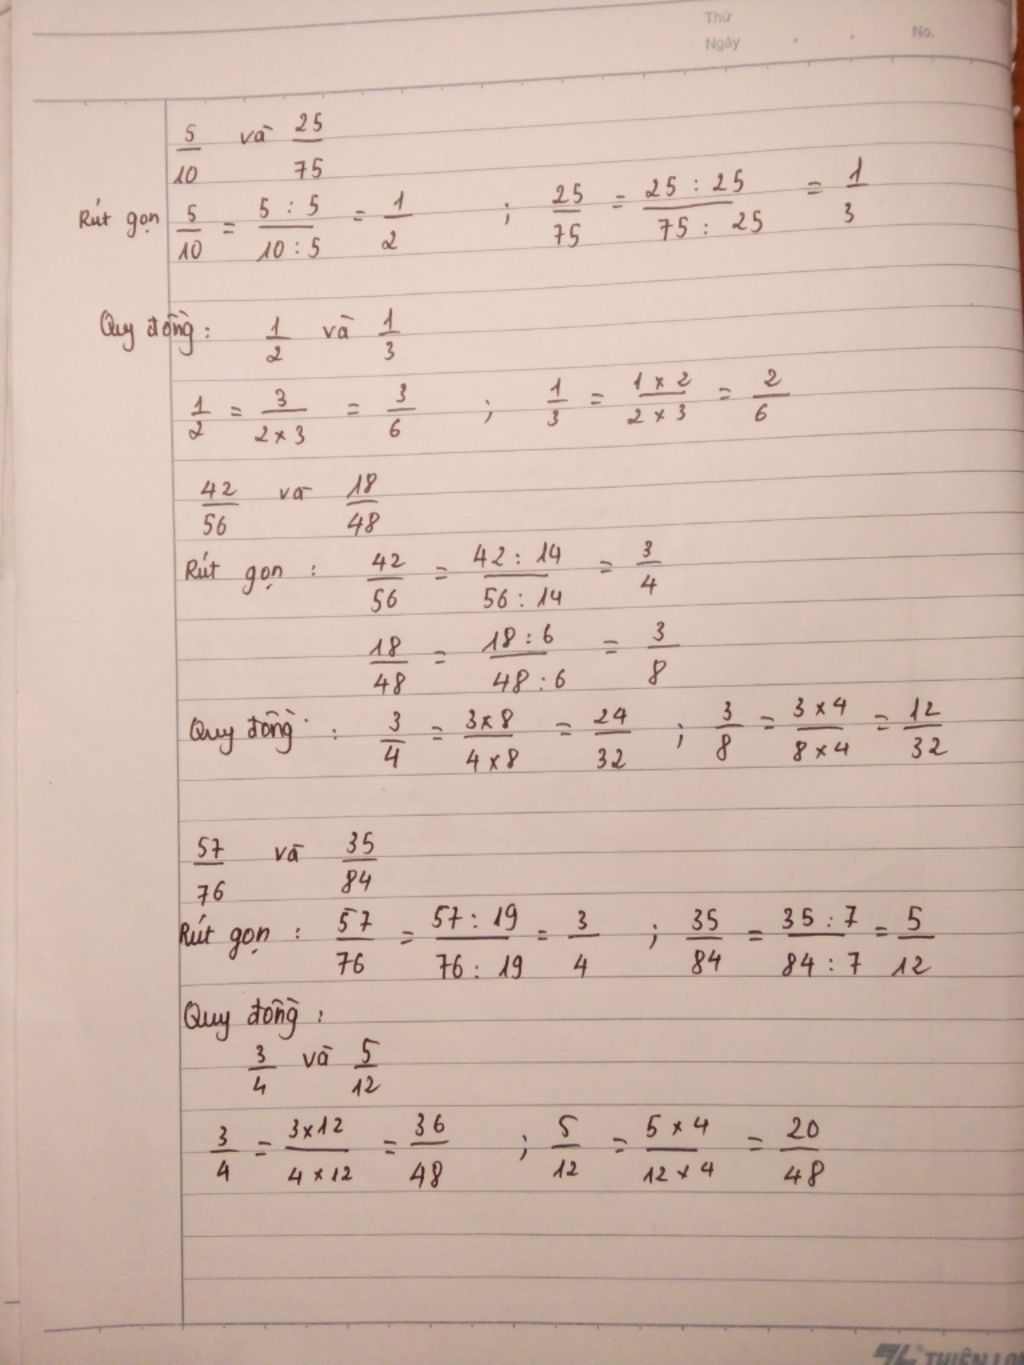 Thứ
Ngày . . No.
5/10 và 25/75
Rút gọn 5/10 = 5 : 5/10 : 5 = 1/2 ; 25/75 = 25 : 25/75 : 25 = 1/3
Quy đồng : 1/2 và 1/3
1/2 = 3/2 x 3 = 3/6 ; 1/3 = 1 x 2/2 x 3 = 2/6
42/56 và 18/48
Rút gọn : 42/56 = 42 : 14/56 : 14 = 3/4
18/48 = 18 : 6/48 : 6 = 3/8
Quy đồng : 3/4 = 3 x 8/4 x 8 = 24/32 ; 3/8 = 3 x 4/8 x 4 = 12/32
57/76 và 35/84
Rút gọn : 57/76 = 57 : 19/76 : 19 = 3/4 ; 35/84 = 35 : 7/84 : 7 = 5/12
Quy đồng :
3/4 và 5/12
3/4 = 3 x 12/4 x 12 = 36/48 ; 5/12 = 5 x 4/12 x 4 = 20/48